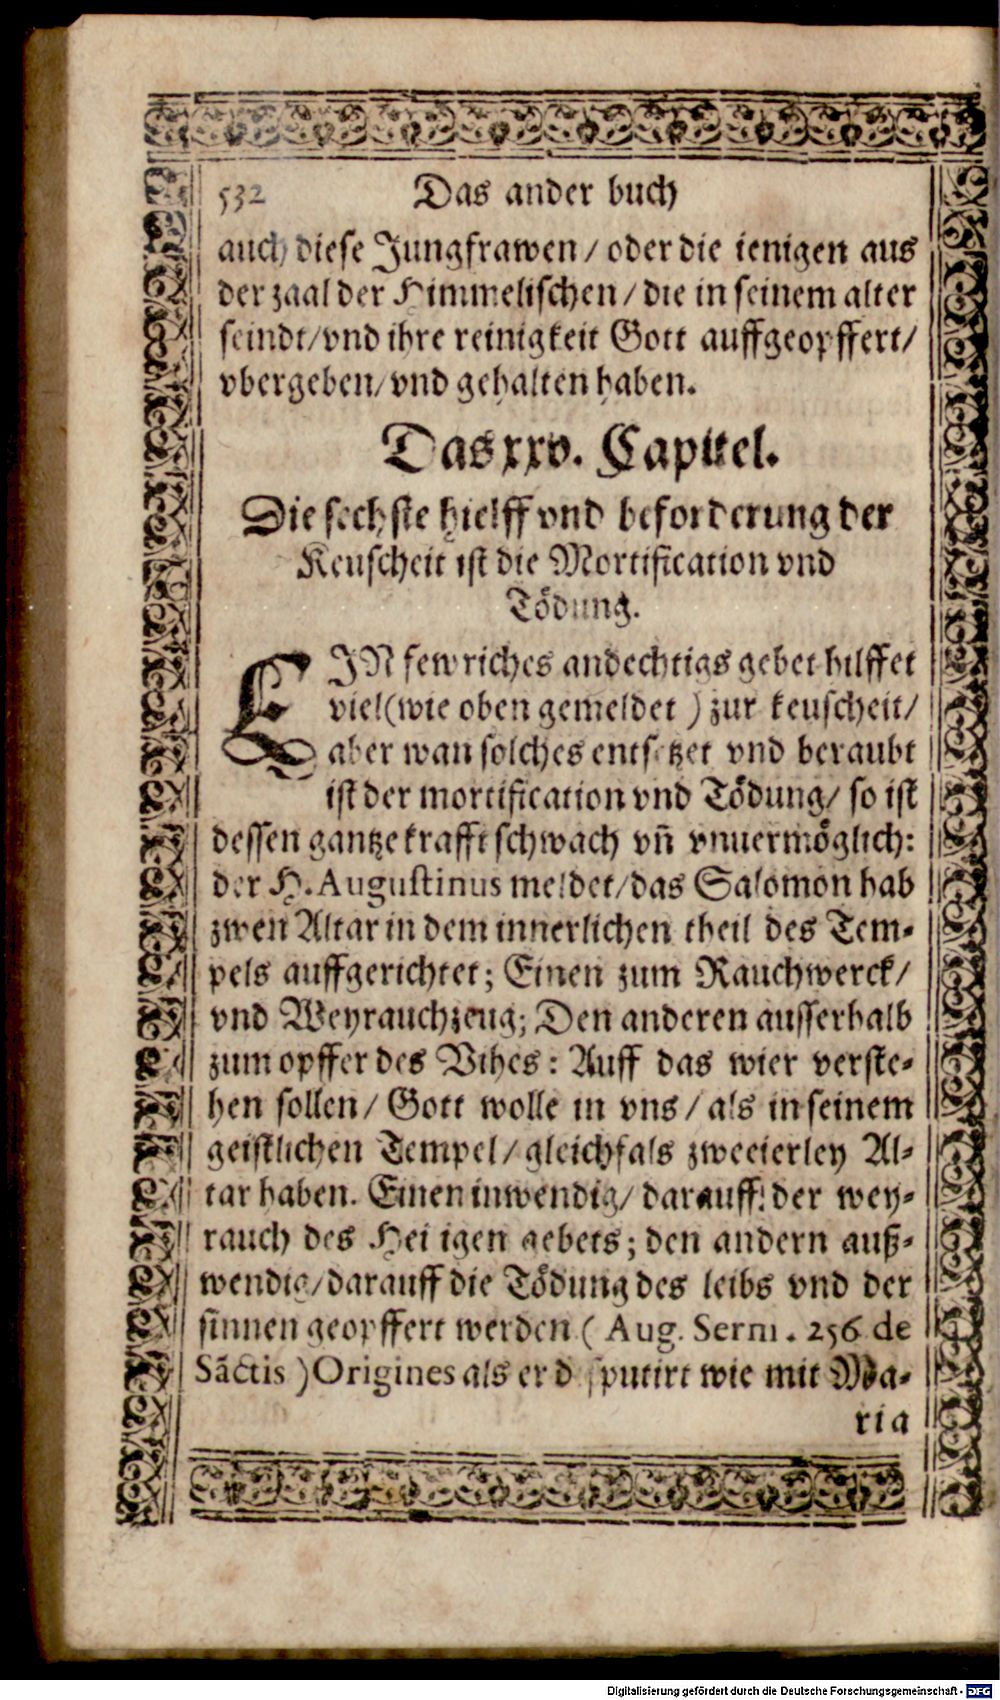 532 Das ander buch
auch diese Jungfrawen / oder die ienigen aus
der zaal der Himmelischen / die in seinem alter
seindt / vnd ihre reinigkeit Gott auffgeopffert /
vbergeben / vnd gehalten haben.
Das xxv. Capitel.
Die sechste hielff vnd beforderung der
Keuscheit ist die Mortification vnd
Tödung.
EIN fewriches andechtigs gebet hilffet
viel (wie oben gemeldet ) zur keuscheit /
aber wan solches entsetzet vnd beraubt
ist der mortification vnd Tödung / so ist
dessen gantze krafft schwach vñ vnuermöglich:
der H. Augustinus meldet / das Salomon hab
zwen Altar in dem innerlichen theil des Tem-
pels auffgerichtet; Einen zum Rauchwerck /
vnd Weyrauchzeug; Den anderen ausserhalb
zum opffer des Vihes: Auff das wier verste-
hen sollen / Gott wolle in vns / als in seinem
geistlichen Tempel / gleichfals zweeierley Al-
tar haben. Einen inwendig / darauff der wey-
rauch des Heiligen gebets; den andern auß-
wendig / darauff die Tödung des leibs vnd der
sinnen geopffert werden ( Aug. Serm . 256 de
Sāctis ) Origines als er disputirt wie mit Ma-
ria
Digitalisierung gefördert durch die Deutsche Forschungsgemeinschaft - DFG